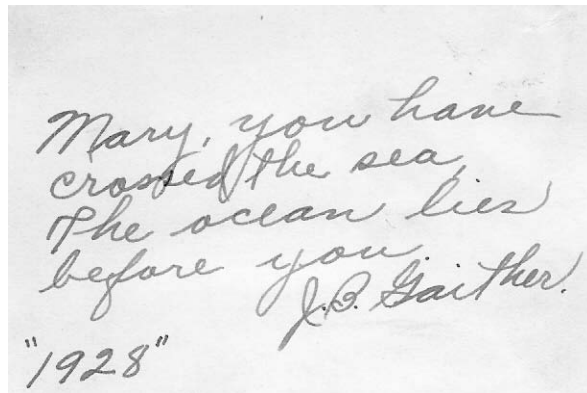 Mary, you have
crossed the sea,
The ocean lies
before you.
J.B. Gaither.
"1928"